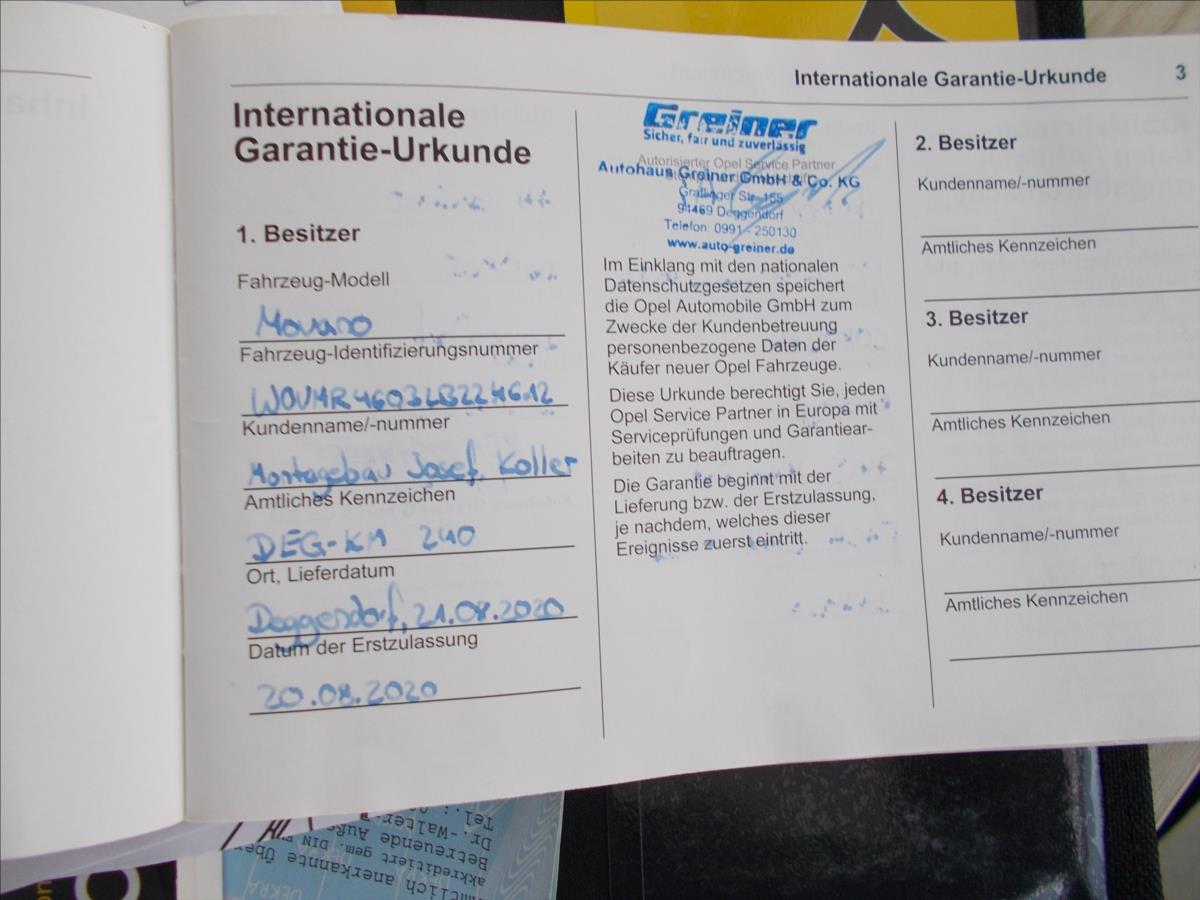 Internationale Garantie-Urkunde 3
Internationale
Garantie-Urkunde
1. Besitzer
Fahrzeug-Modell
Movano
Fahrzeug-Identifizierungsnummer
W0VMR4603LB224612
Kundenname/-nummer
Montagebau Josef Koller
Amtliches Kennzeichen
DEG-KM 240
Ort, Lieferdatum
Deggendorf, 21.08.2020
Datum der Erstzulassung
20.08.2020
Greiner
Sicher, fair und zuverlässig
Autorisierter Opel Service Partner
Autohaus Greiner GmbH & Co. KG
Graflinger Str. 155
94469 Deggendorf
Telefon: 0991 - 250130
www.auto-greiner.de
Im Einklang mit den nationalen
Datenschutzgesetzen speichert
die Opel Automobile GmbH zum
Zwecke der Kundenbetreuung
personenbezogene Daten der
Käufer neuer Opel Fahrzeuge.
Diese Urkunde berechtigt Sie, jeden
Opel Service Partner in Europa mit
Serviceprüfungen und Garantiear-
beiten zu beauftragen.
Die Garantie beginnt mit der
Lieferung bzw. der Erstzulassung,
je nachdem, welches dieser
Ereignisse zuerst eintritt.
2. Besitzer
Kundenname/-nummer
Amtliches Kennzeichen
3. Besitzer
Kundenname/-nummer
Amtliches Kennzeichen
4. Besitzer
Kundenname/-nummer
Amtliches Kennzeichen
anerkannte
akkreditiert gem. DIN
Betreuende
Dr.-Walter-
Tel.:
DEKRA